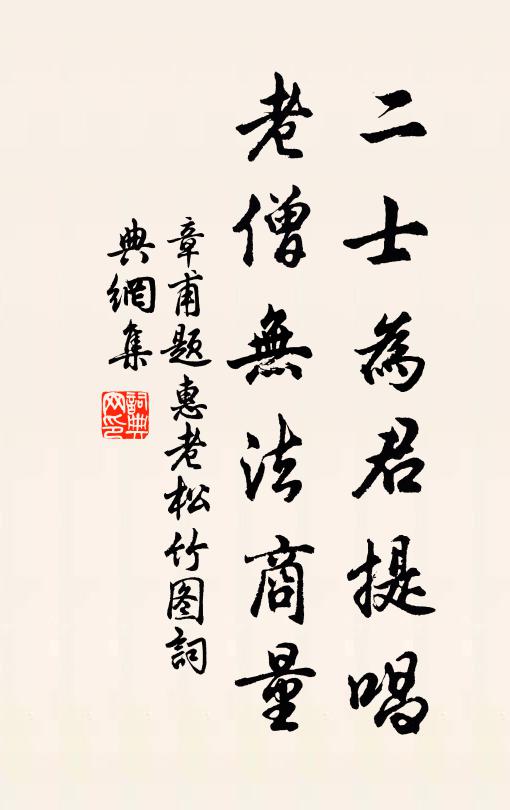 二士為君提唱
老僧無法商量
章甫題惠老松竹图詞
典網集
詞典網印